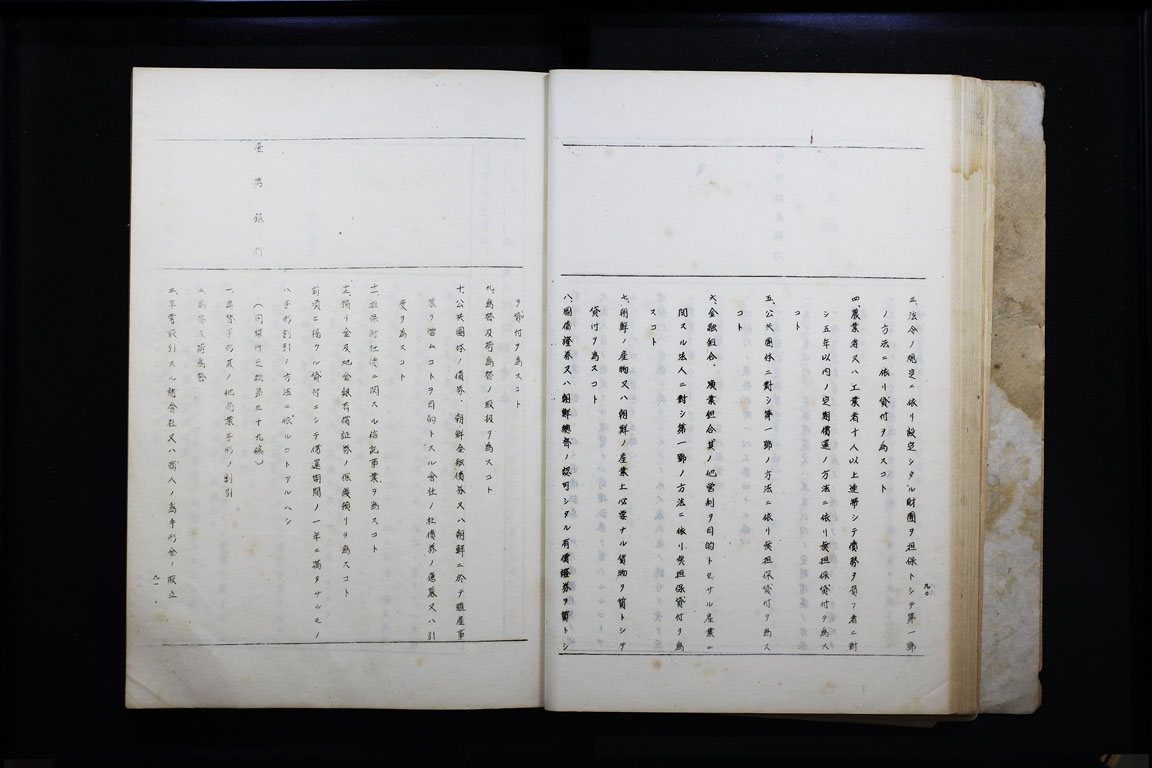 三、法令ノ規定ニ依リ設定シタル財團ヲ担保トシテ第一號
ノ方法ニ依リ貸付ヲ為スコト
四、農業者又ハ工業者十人以上連帯シテ債務ヲ負フ者ニ対
シ五年以内ノ定期償還ノ方法ニ依リ無担保貸付ヲ為ス
コト
五、公共團体ニ對シ第一號ノ方法ニ依リ無担保貸付ヲ為ス
コト
六、金融組合、漁業組合其ノ他営利ヲ目的トセサル産業ニ
関スル法人ニ對シ第一號ノ方法ニ依リ無担保貸付ヲ為
スコト
七、朝鮮ノ産物又ハ朝鮮ノ産業上必要ナル貨物ヲ質トシテ
貸付ヲ為スコト
八、國債證券又ハ朝鮮總督ノ認可シタル有價證券ヲ質トシ
九〇
ヲ貸付ヲ為スコト
九、為替及荷為替ノ取扱ヲ為スコト
十、公共團体ノ債券、朝鮮金融債券又ハ朝鮮ニ於テ殖産事
業ヲ営ムコトヲ目的トスル会社ノ社債券ノ應募又ハ引
受ヲ為スコト
十一、担保附社債ニ関スル信託事業ヲ為スコト
十二、預リ金及地金銀有價証券ノ保護預リヲ為スコト
前項ニ掲クル貸付ニシテ償還期間ノ一年ニ満タサルモノ
ハ手形割引ノ方法ニ依ルコトアルヘシ
臺灣銀行
(同銀行定款第三十九條)
一、為替手形其ノ他商業手形ノ割引
二、為替及荷為替
三、平常取引スル諸会社又ハ商人ノ為手形金ノ取立
九一